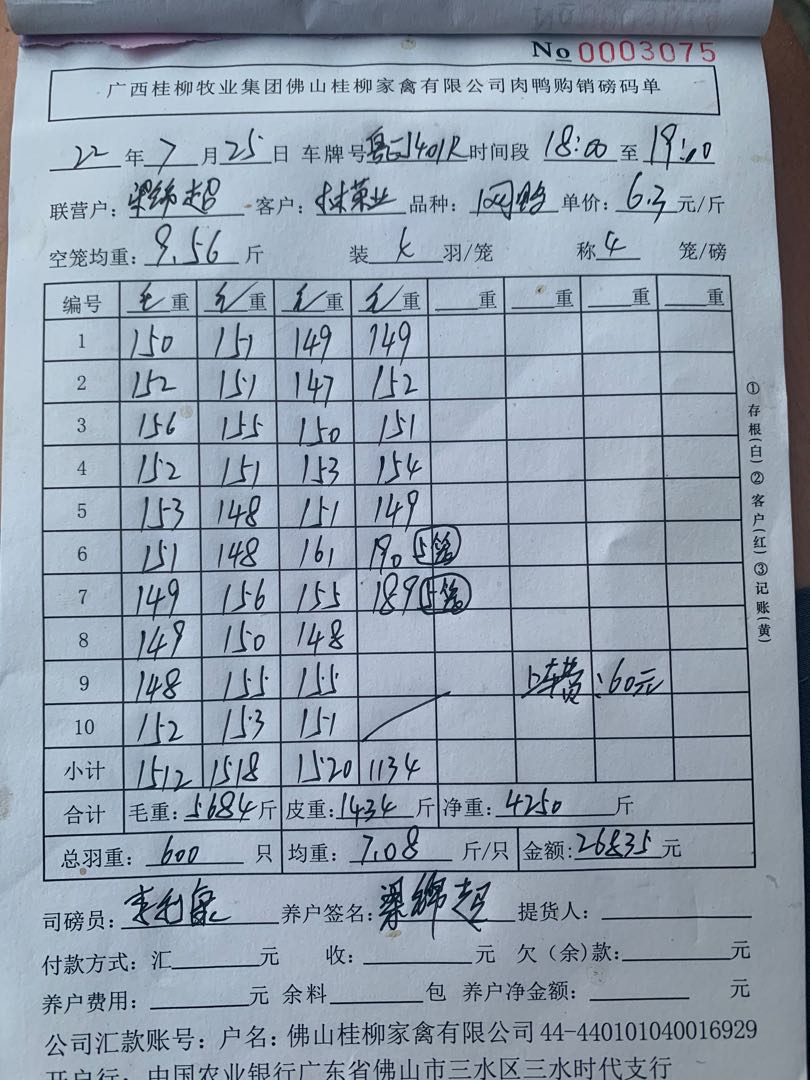 No 0003075
广西桂柳牧业集团佛山桂柳家禽有限公司肉鸭购销磅码单
22 年 7 月 25 日 车牌号 粤 J401R 时间段 18:00 至 19:10
联营户：梁绵超 客户：林荣业 品种： 单价：6.3 元/斤
空笼均重：9.56 斤 装 羽/笼 称 4 笼/磅
编号 毛重 毛重 毛重 毛重 重 重 重 重
1 150 151 149 149
2 152 151 147 152
3 156 155 150 151
4 152 151 153 154
5 153 148 151 149
6 151 148 161 190 5笼
7 149 156 155 189 5笼
8 149 150 148
9 148 155 155 上车费：60元
10 152 153 151
小计 1512 1518 1520 1134
合计 毛重：5684 斤 皮重：1434 斤 净重：4250 斤
总羽重：600 只 均重：7.08 斤/只 金额：26835 元
司磅员：李利 养户签名：梁绵超 提货人：
付款方式：汇 元 收： 元 欠（余）款： 元
养户费用： 元 余料 包 养户净金额： 元
公司汇款账号：户名：佛山桂柳家禽有限公司 44-440101040016929
开户行：中国农业银行广东省佛山市三水区三水时代支行
①存根(白)②客户(红)③记账(黄)